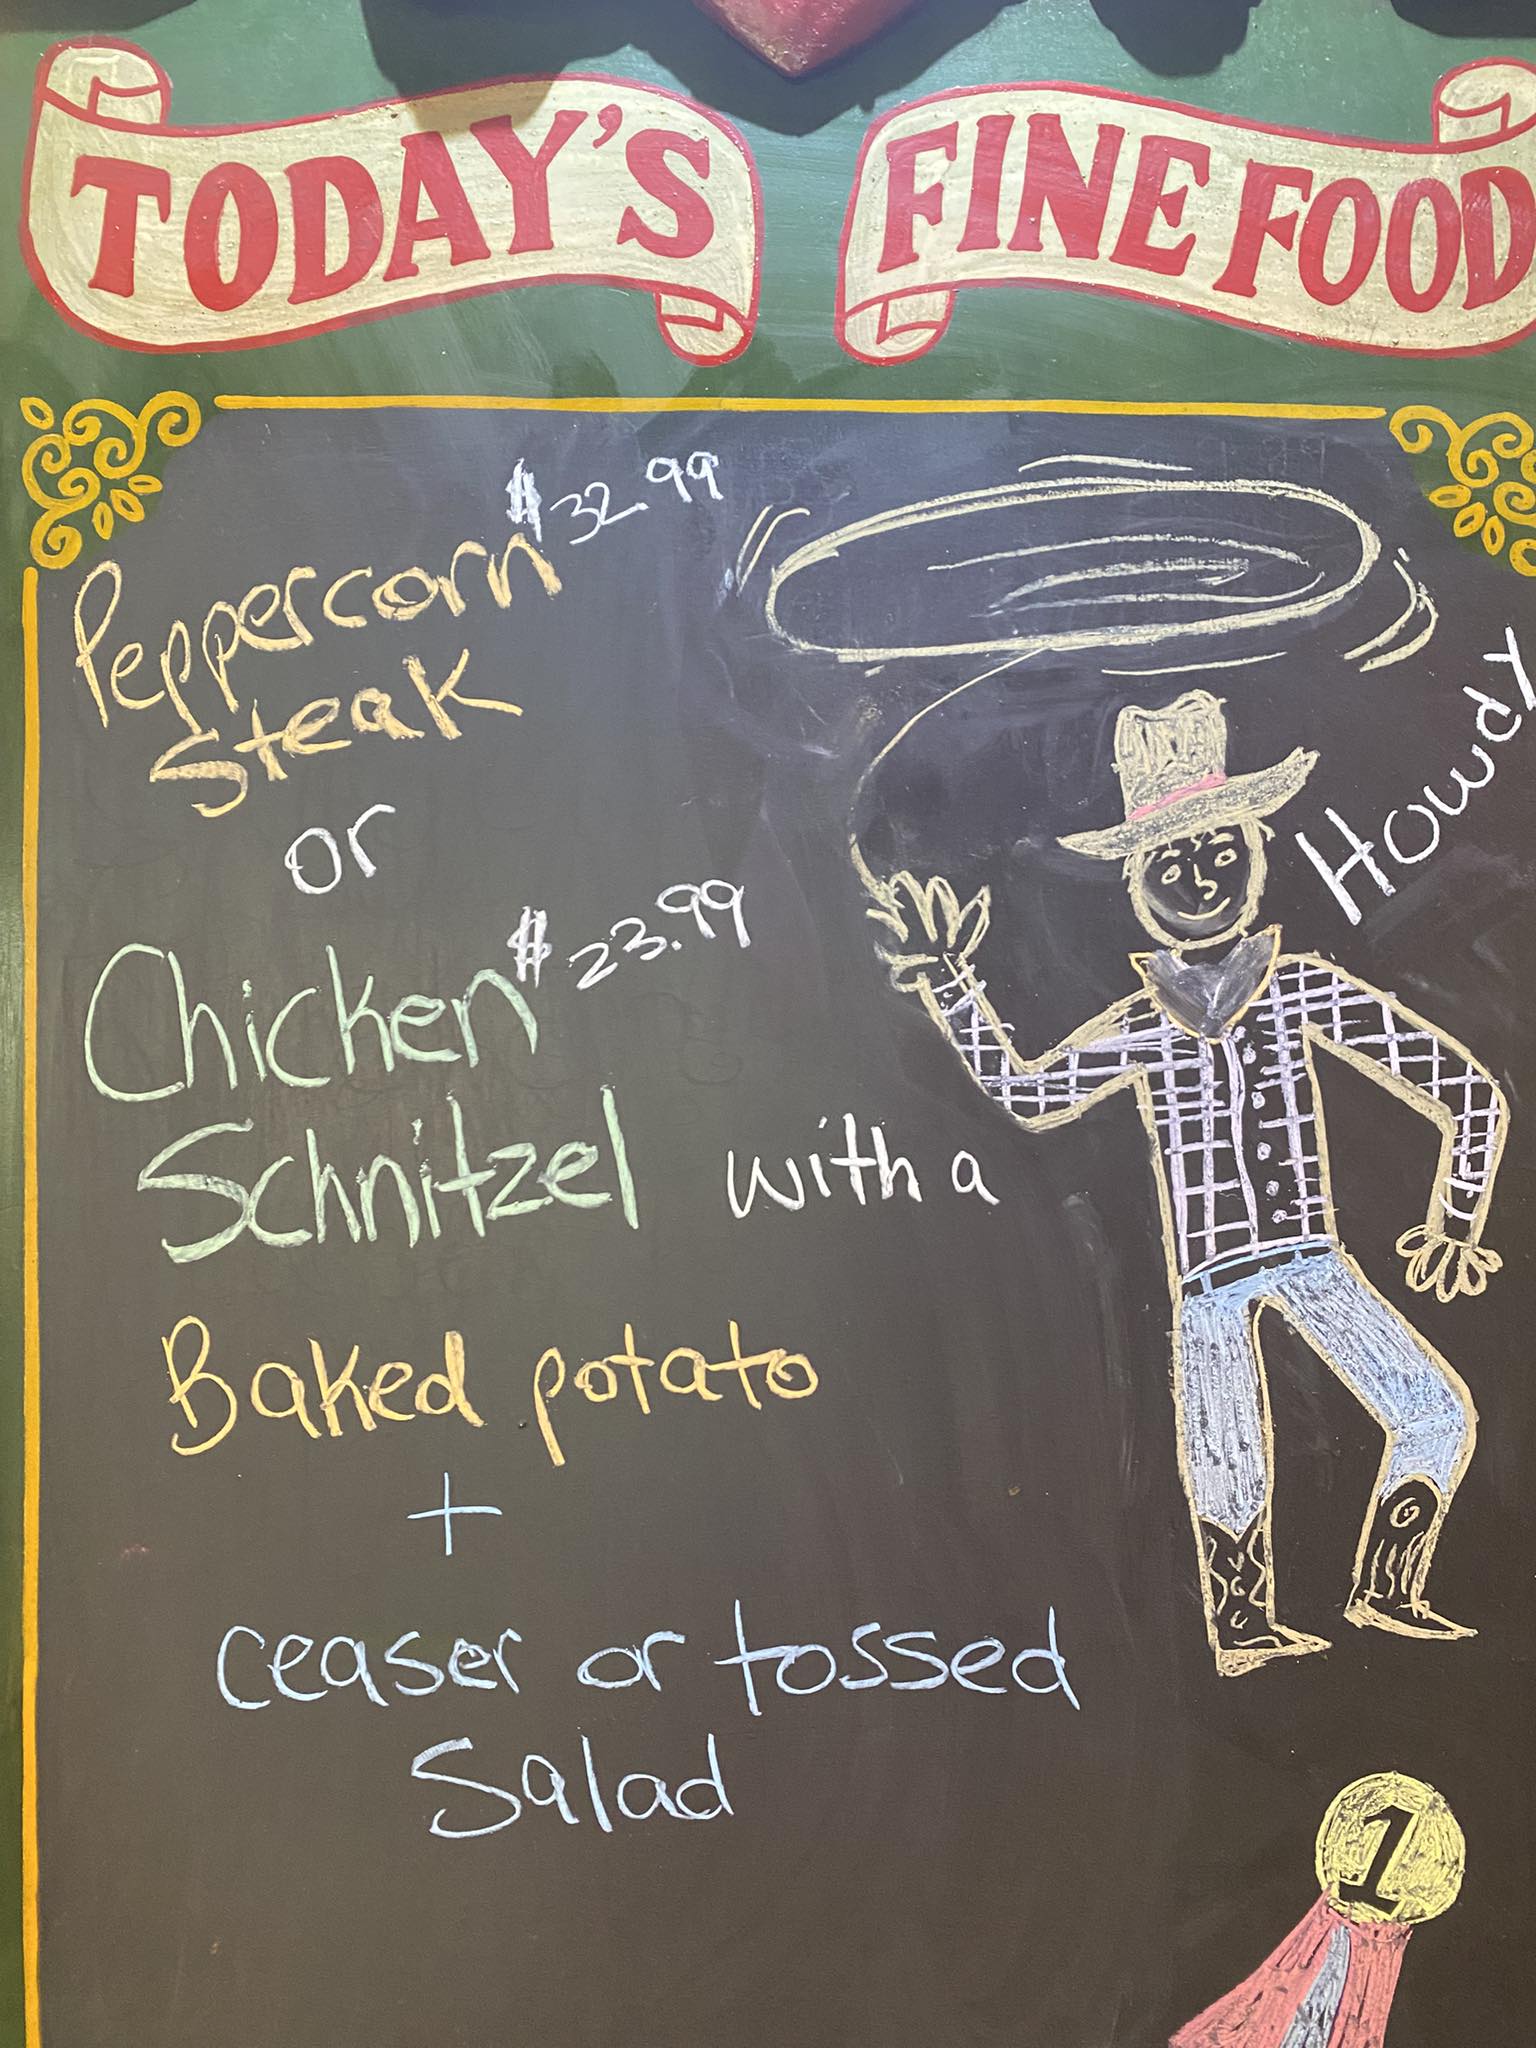 TODAY'S FINE FOOD
$32.99
Peppercorn
Steak
or
$23.99
Chicken
Schnitzel with a
Baked potato
+
ceaser or tossed
Salad
Howdy
1